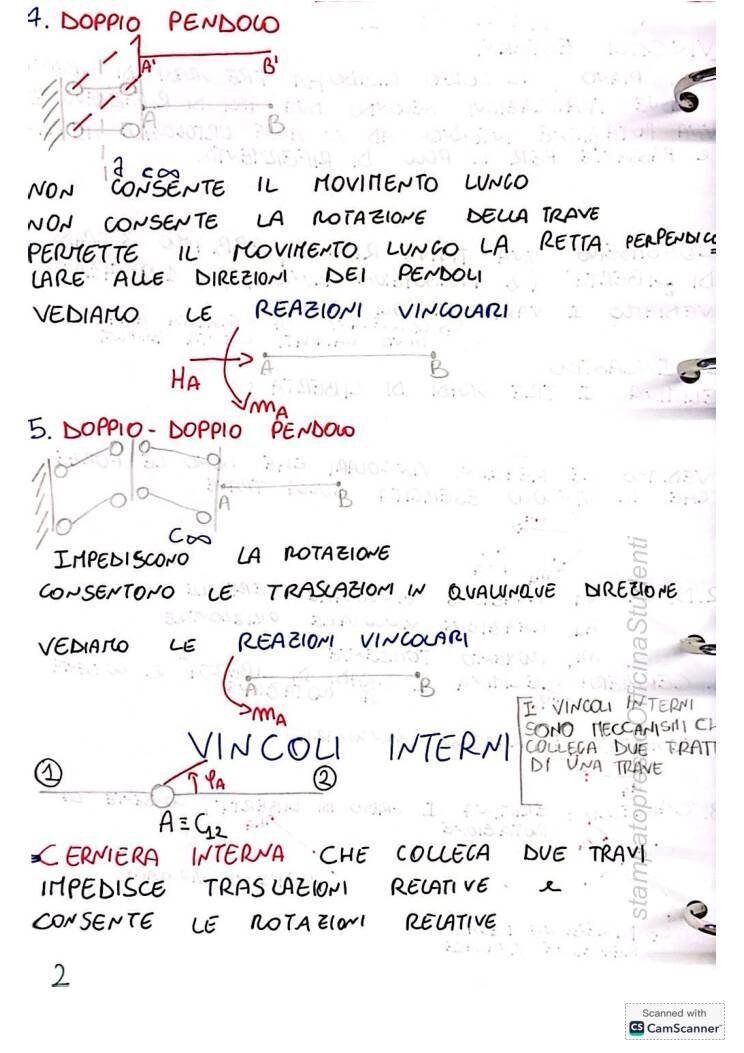 7. DOPPIO PENDOLO
A' B'
A B
C∞
NON CONSENTE IL MOVIMENTO LUNGO
NON CONSENTE LA ROTAZIONE DELLA TRAVE
PERMETTE IL MOVIMENTO LUNGO LA RETTA PERPENDICO
LARE ALLE DIREZIONI DEI PENDOLI
VEDIAMO LE REAZIONI VINCOLARI
HA A B
mA
5. DOPPIO-DOPPIO PENDOLO
A B
C∞
IMPEDISCONO LA ROTAZIONE
CONSENTONO LE TRASLAZIONI IN QUALUNQUE DIREZIONE
VEDIAMO LE REAZIONI VINCOLARI
A B
mA
I VINCOLI INTERNI
SONO MECCANISMI CH
COLLEGA DUE TRATT
DI UNA TRAVE
VINCOLI INTERNI
1 φA 2
A≡C12
CERNIERA INTERNA CHE COLLEGA DUE TRAVI
IMPEDISCE TRASLAZIONI RELATIVE e
CONSENTE LE ROTAZIONI RELATIVE
2
Scanned with
CS CamScanner